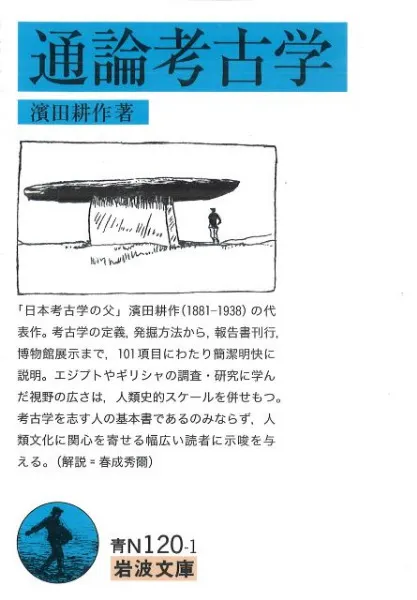 通論考古学
濱田耕作著
「日本考古学の父」濱田耕作(1881–1938)の代
表作。考古学の定義,発掘方法から,報告書刊行,
博物館展示まで,101項目にわたり簡潔明快に
説明。エジプトやギリシャの調査・研究に学ん
だ視野の広さは,人類史的スケールを併せもつ。
考古学を志す人の基本書であるのみならず,人
類文化に関心を寄せる幅広い読者に示唆を与
える。(解説=春成秀爾)
青N120-1
岩波文庫